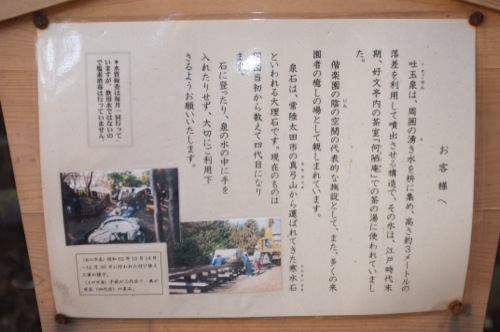 お客様へ
吐玉泉は、周囲の湧き水を枡に集め、高さ約3メートルの
落差を利用して噴出させる構造で、その水は、江戸時代末
期、好文亭内の茶室「何陋庵」での茶の湯に使われていまし
た。
偕楽園の陰の空間の代表的な施設として、また、多くの来
園者の癒しの場として親しまれています。
泉石は、常陸太田市の真弓山から運ばれてきた寒水石
といわれる大理石です。現在のものは
開園当初から数えて四代目になり
ます。
石に登ったり、泉の水の中に手を
入れたりせず、大切にご利用下
さるようお願いいたします。
*水質検査は毎月一回行って
いますが、飲用水ではないの
で塩素消毒は行っていません。
昭和62年12月14日